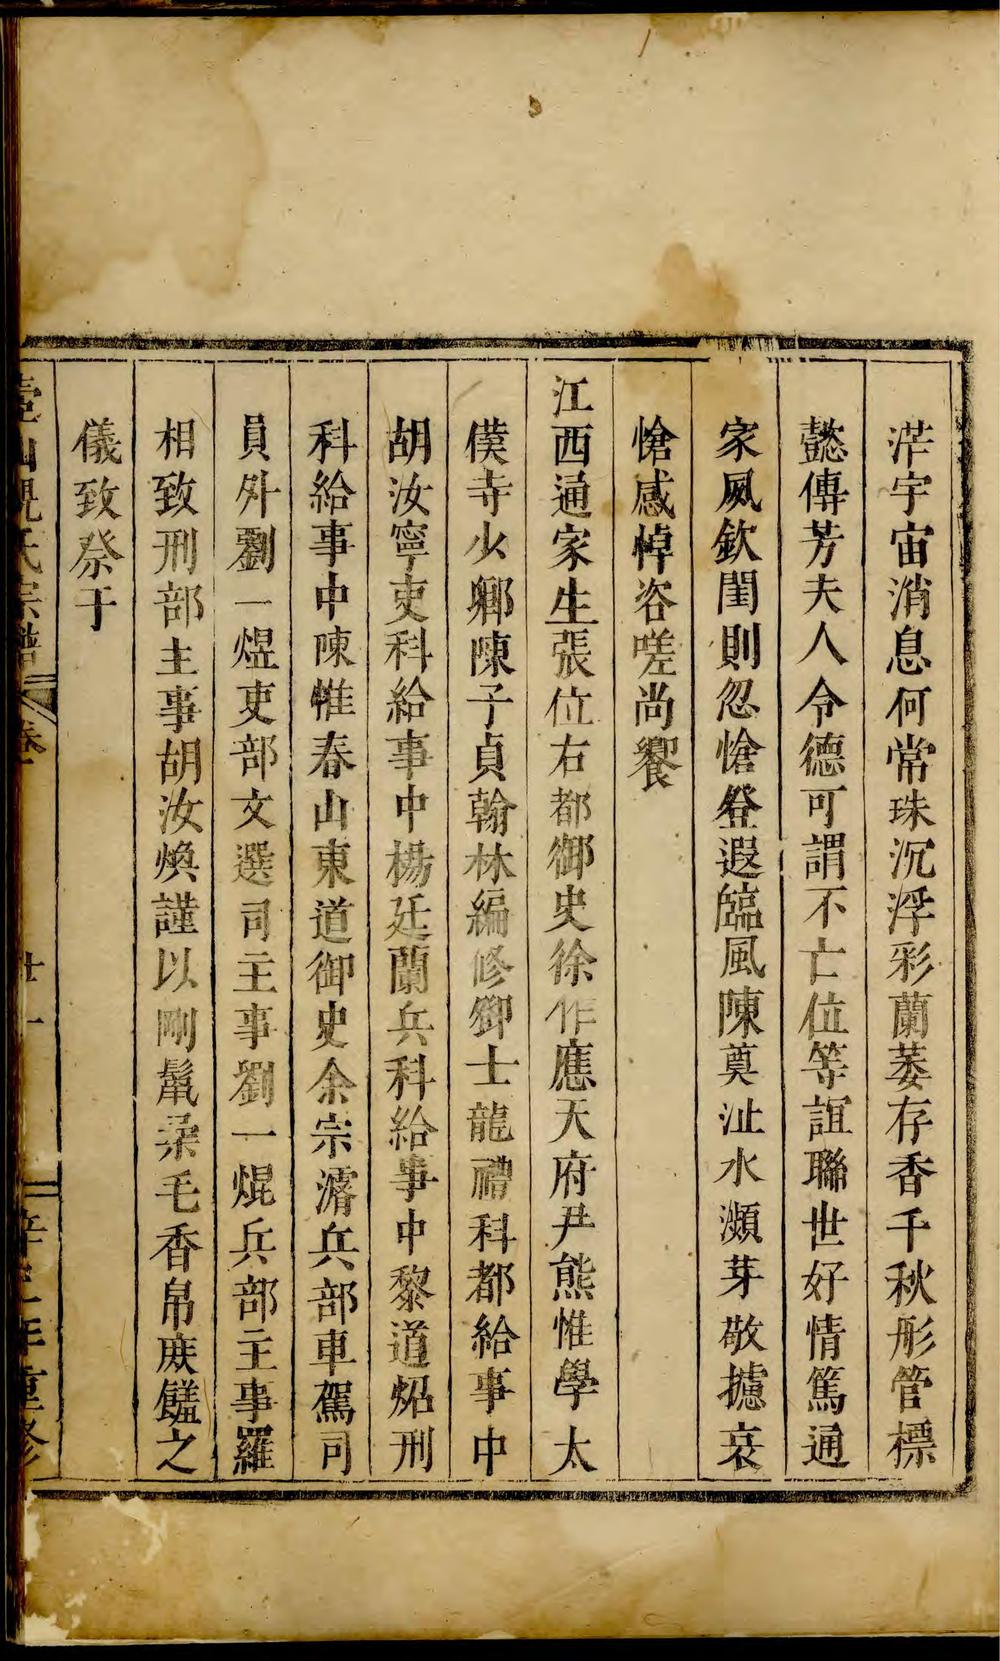 茫宇宙消息何常珠沉浮彩蘭萎存香千秋彤管標
懿傳芳夫人令德可謂不亡位等誼聯世好情篤通
家夙欽閨則忽愴登遐臨風陳奠沚水瀕芽敬攄哀
愴感悼咨嗟尚饗
江西通家生張位右都御史徐作應天府尹熊惟學太
僕寺少卿陳子貞翰林編修鄧士龍禮科都給事中
胡汝寧吏科給事中楊廷蘭兵科給事中黎道炤刑
科給事中陳惟春山東道御史余宗濬兵部車駕司
員外劉一煜吏部文選司主事劉一焜兵部主事羅
相致刑部主事胡汝煥謹以剛鬣柔毛香帛庶饈之
儀致祭于
氏宗譜 卷一 廿一 重修